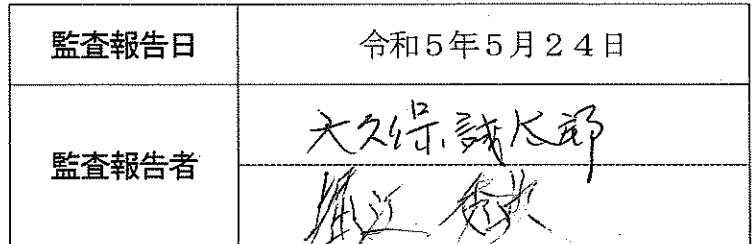 監査報告日 令和5年5月24日
監査報告者 大久保